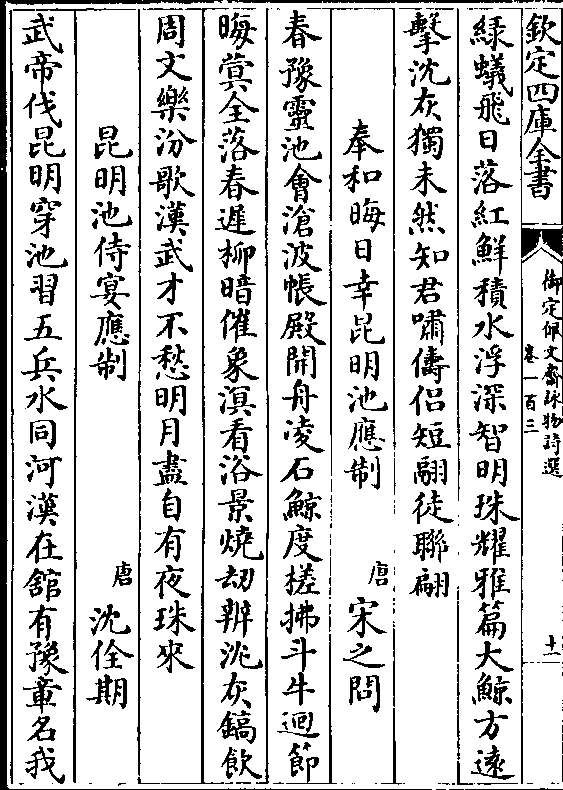 欽定四庫全書
御定佩文齋詠物詩選
卷一百三
十一
緑蟻飛日落紅鮮積水浮深智明珠耀雅篇大鯨方遠
擊沈灰獨未然知君嘯儔侣短翮徒聯翩
奉和晦日幸昆明池應制
唐
宋之問
春豫靈池會滄波帳殿開舟凌石鯨度槎拂斗牛迴節
晦蓂全落春遲柳暗催象溟看浴景燒劫辨沈灰鎬飲
周文樂汾歌漢武才不愁明月盡自有夜珠來
昆明池侍宴應制
唐
沈佺期
武帝伐昆明穿池習五兵水同河漢在舘有豫章名我